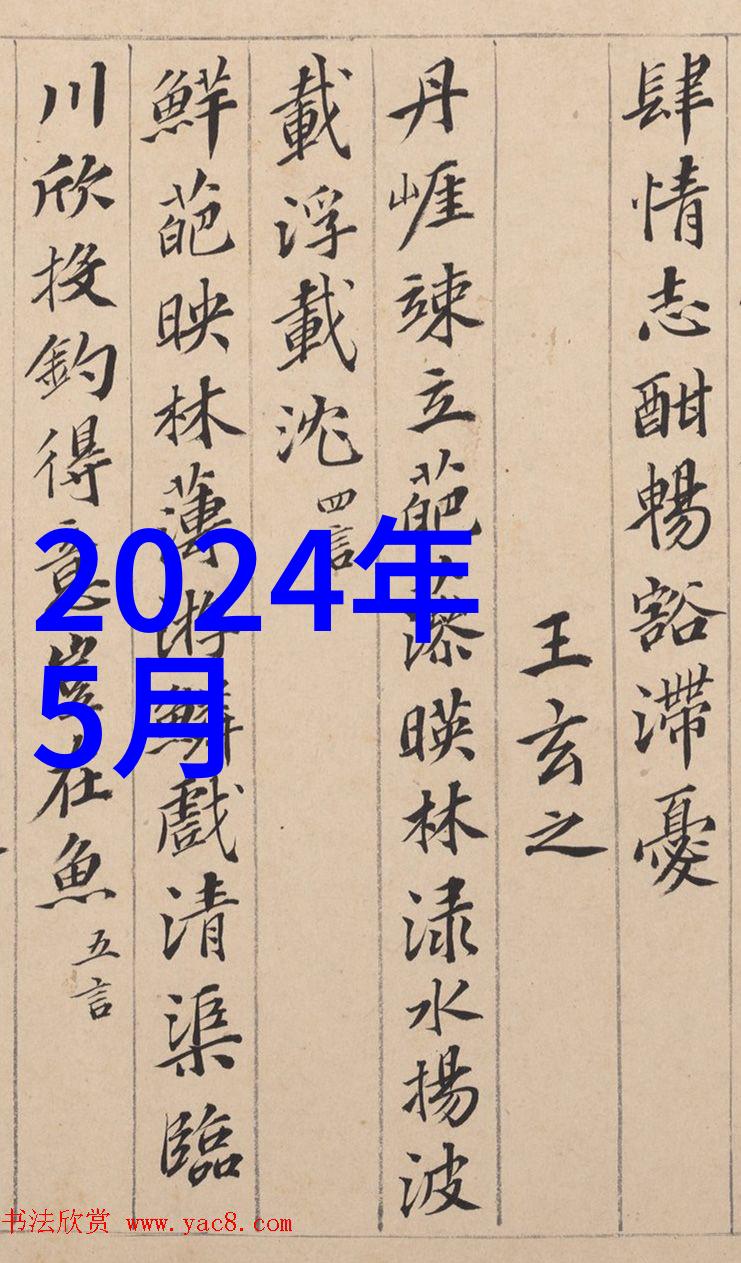 肆情志酣暢豁滯憂
王玄之
丹崕竦立葩藻暎林渌水揚波
載浮載沈 四言
鮮葩映林薄游鱗戲清渠臨
川欣投釣得意豈在魚 五言
2024年
5月
书法欣赏 www.yac8.com